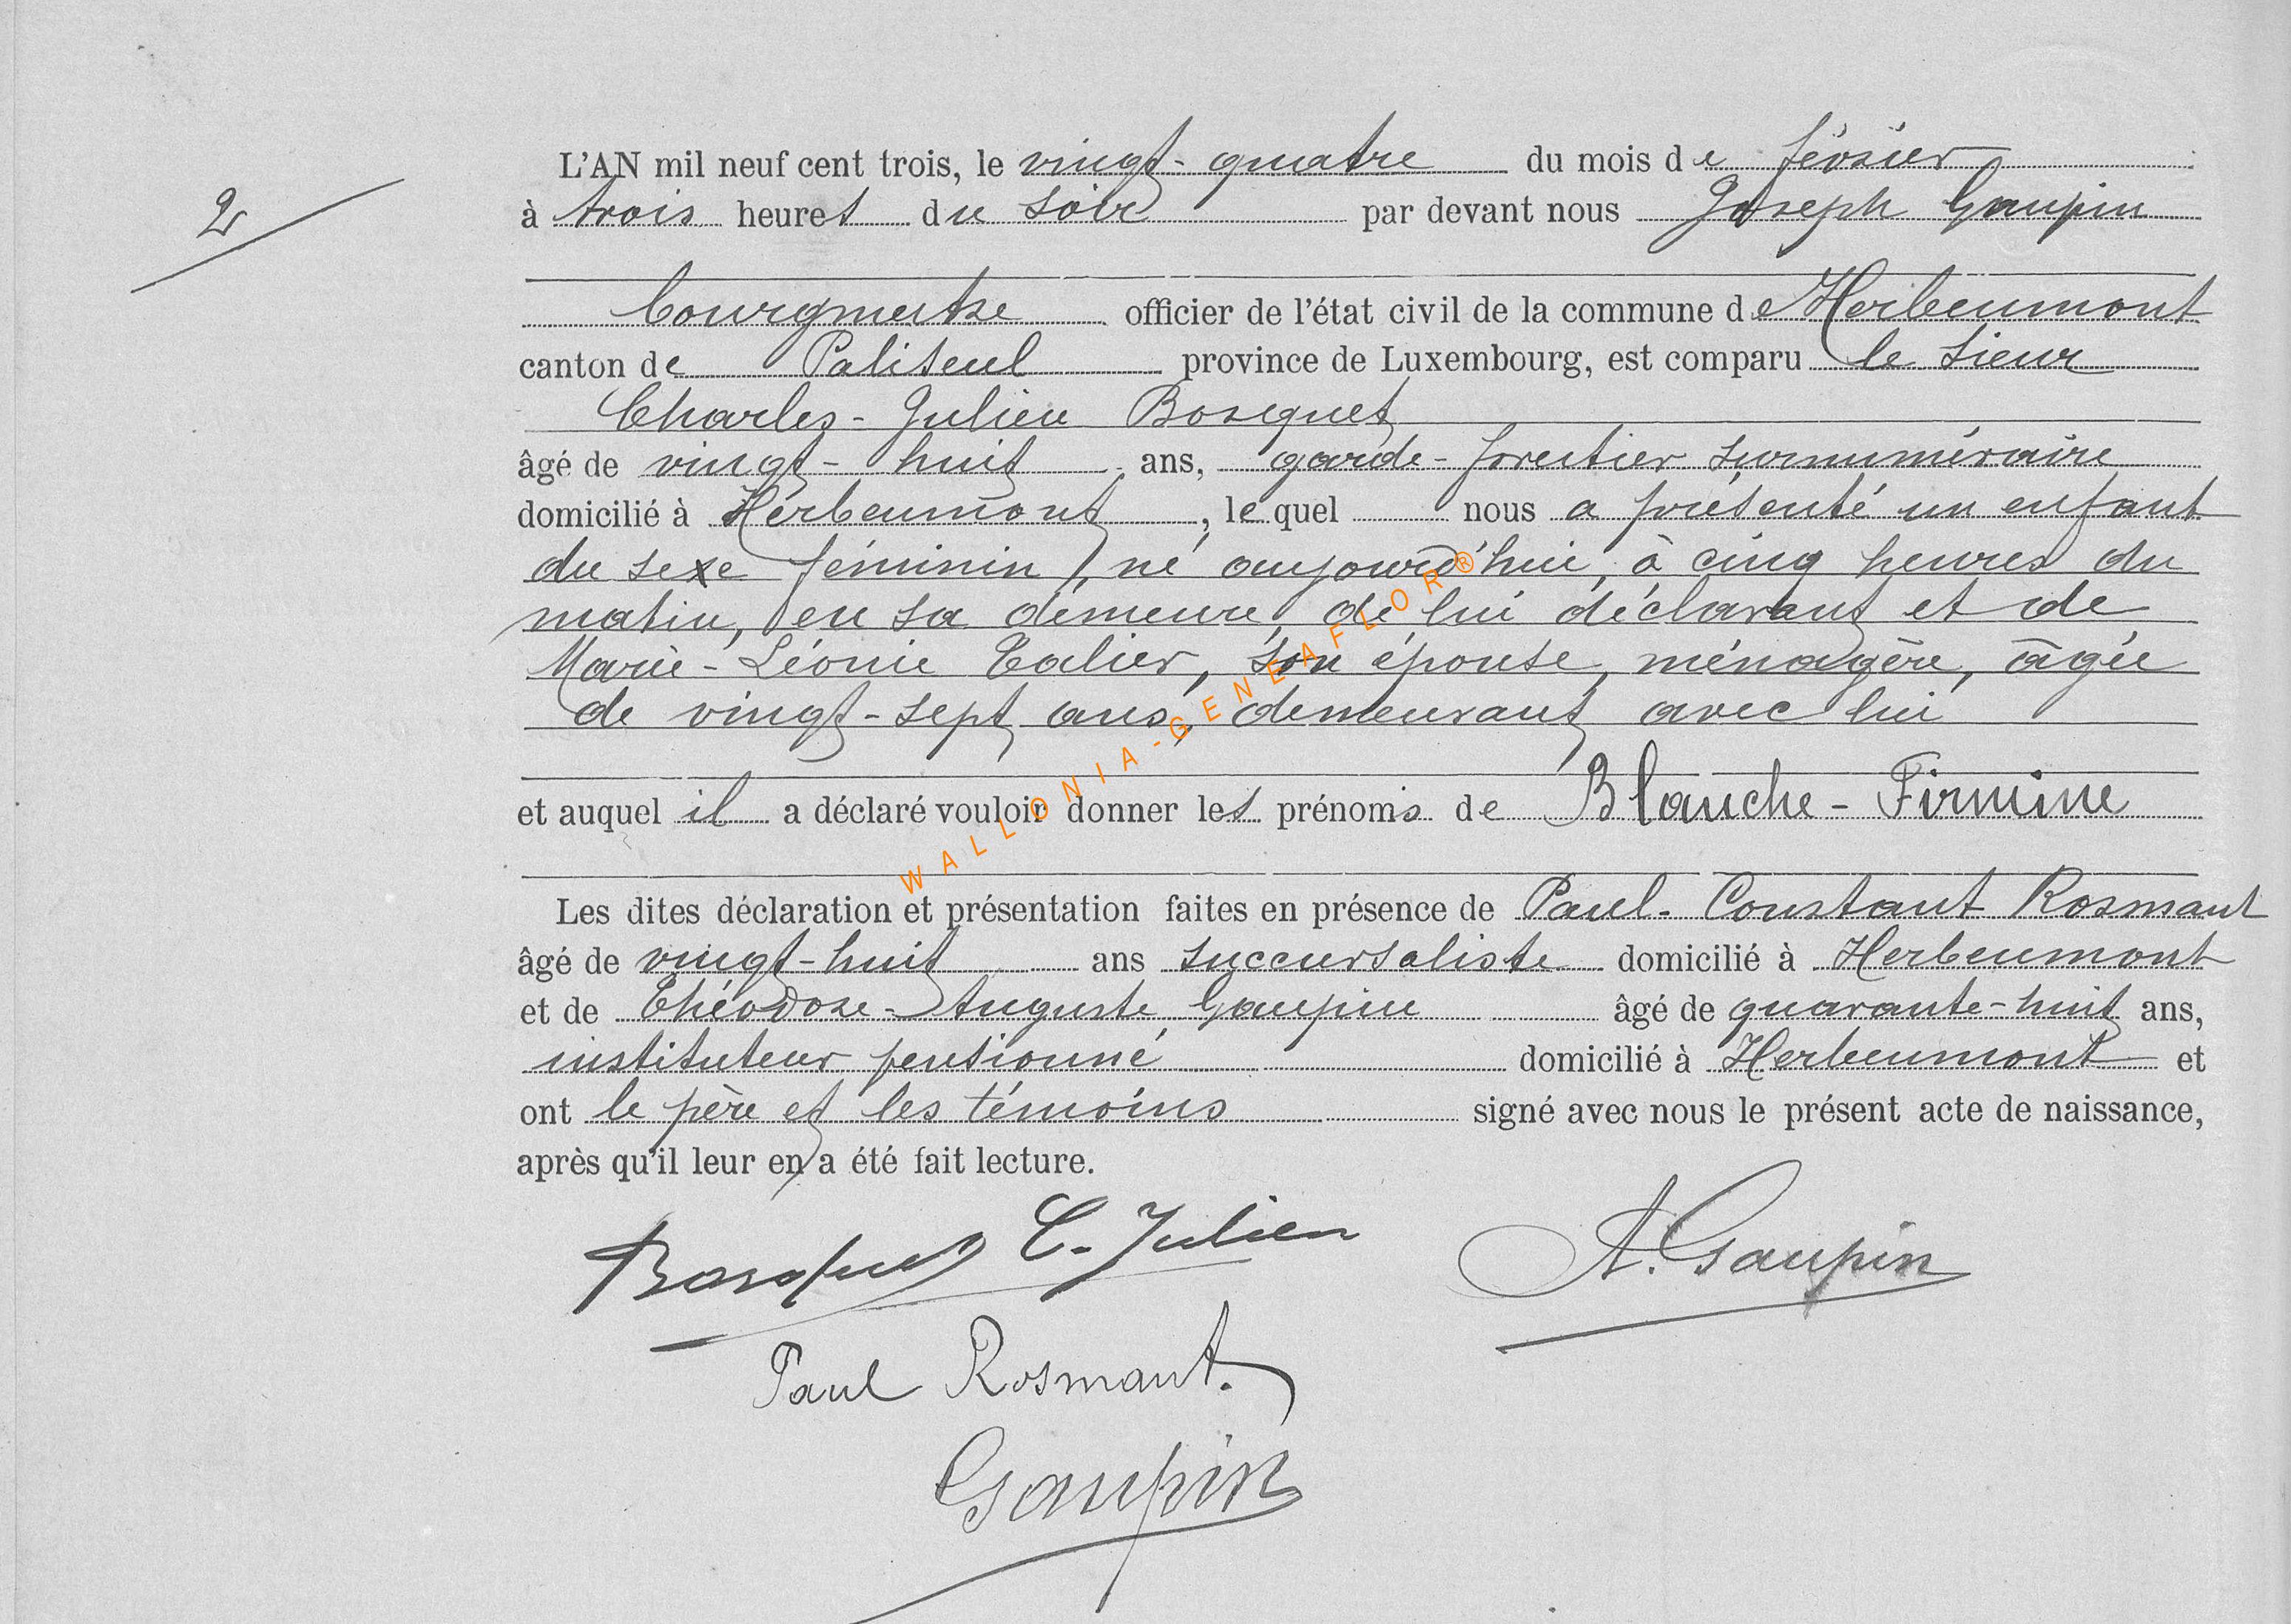 L'AN mil neuf cent trois, le vingt-quatre du mois de février
2
à trois heures du soir par devant nous Joseph Gaupin
bourgmestre officier de l'état civil de la commune de Herbeumont
canton de Paliseul province de Luxembourg, est comparu le sieur
Charles-Julien Bosquet
âgé de vingt-huit ans, garde-forestier surnuméraire
domicilié à Herbeumont, lequel nous a présenté un enfant
du sexe féminin, né aujourd'hui, à cinq heures du
matin, en sa demeure, de lui déclarant et de
Marie-Léonie Talier, son épouse, ménagère, âgée
de vingt-sept ans, demeurant avec lui
et auquel il a déclaré vouloir donner les prénoms de Blanche-Firmine
WALLONIA-GENEAFLOR®
Les dites déclaration et présentation faites en présence de Paul-Constant Rosmant
âgé de vingt-huit ans succursaliste domicilié à Herbeumont
et de Théodore-Auguste Gaupin âgé de quarante-huit ans,
instituteur pensionné domicilié à Herbeumont et
ont le père et les témoins signé avec nous le présent acte de naissance,
après qu'il leur en a été fait lecture.
Bosquet C-Julien A. Gaupin
Paul Rosmant.
Gaupin